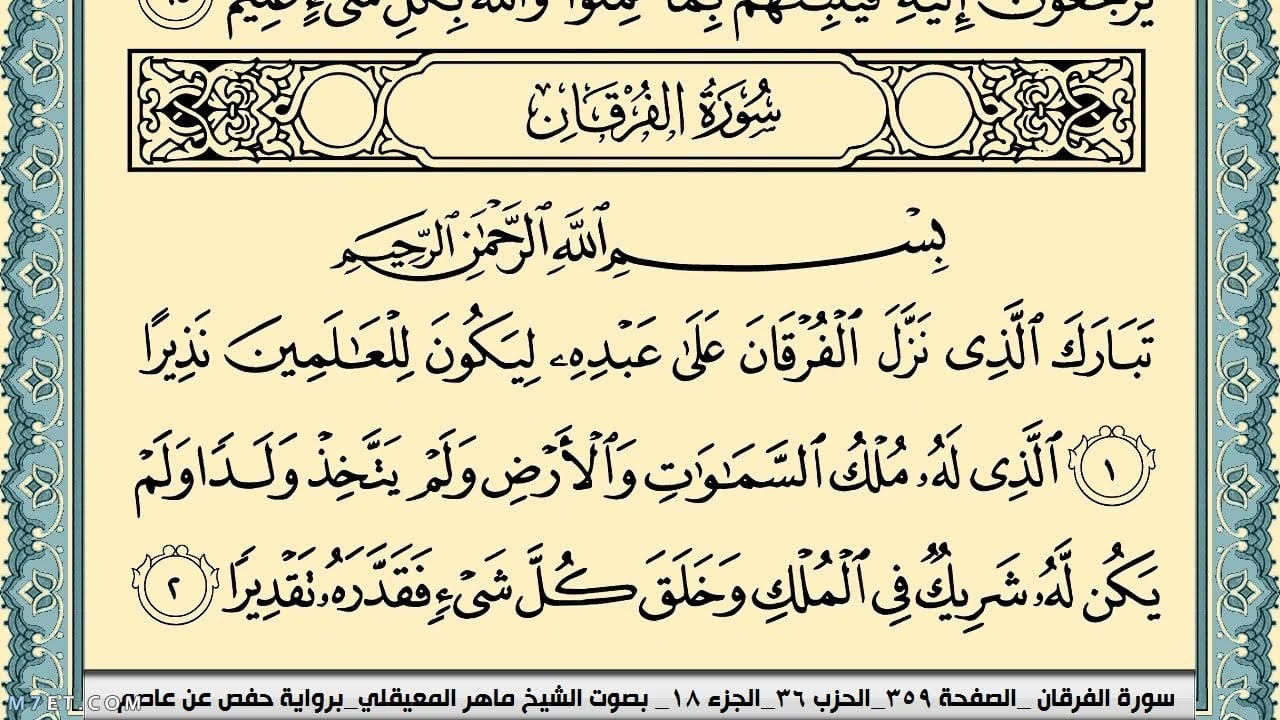 يُرْجَعُونَ إِلَيْهِ فَيُنَبِّئُهُم بِمَا عَمِلُوا۟ وَٱللَّهُ بِكُلِّ شَىْءٍ عَلِيمٌۢ
سُورَةُ الفُرْقَانِ
بِسْمِ ٱللَّهِ ٱلرَّحْمَٰنِ ٱلرَّحِيمِ
تَبَارَكَ ٱلَّذِى نَزَّلَ ٱلْفُرْقَانَ عَلَىٰ عَبْدِهِۦ لِيَكُونَ لِلْعَٰلَمِينَ نَذِيرًا
١ ٱلَّذِى لَهُۥ مُلْكُ ٱلسَّمَٰوَٰتِ وَٱلْأَرْضِ وَلَمْ يَتَّخِذْ وَلَدًا وَلَمْ
يَكُن لَّهُۥ شَرِيكٌ فِى ٱلْمُلْكِ وَخَلَقَ كُلَّ شَىْءٍ فَقَدَّرَهُۥ تَقْدِيرًا ٢
سورة الفرقان _الصفحة ٣٥٩_الحزب ٣٦_الجزء ١٨_ بصوت الشيخ ماهر المعيقلي_برواية حفص عن عاصم
M7ET.COM